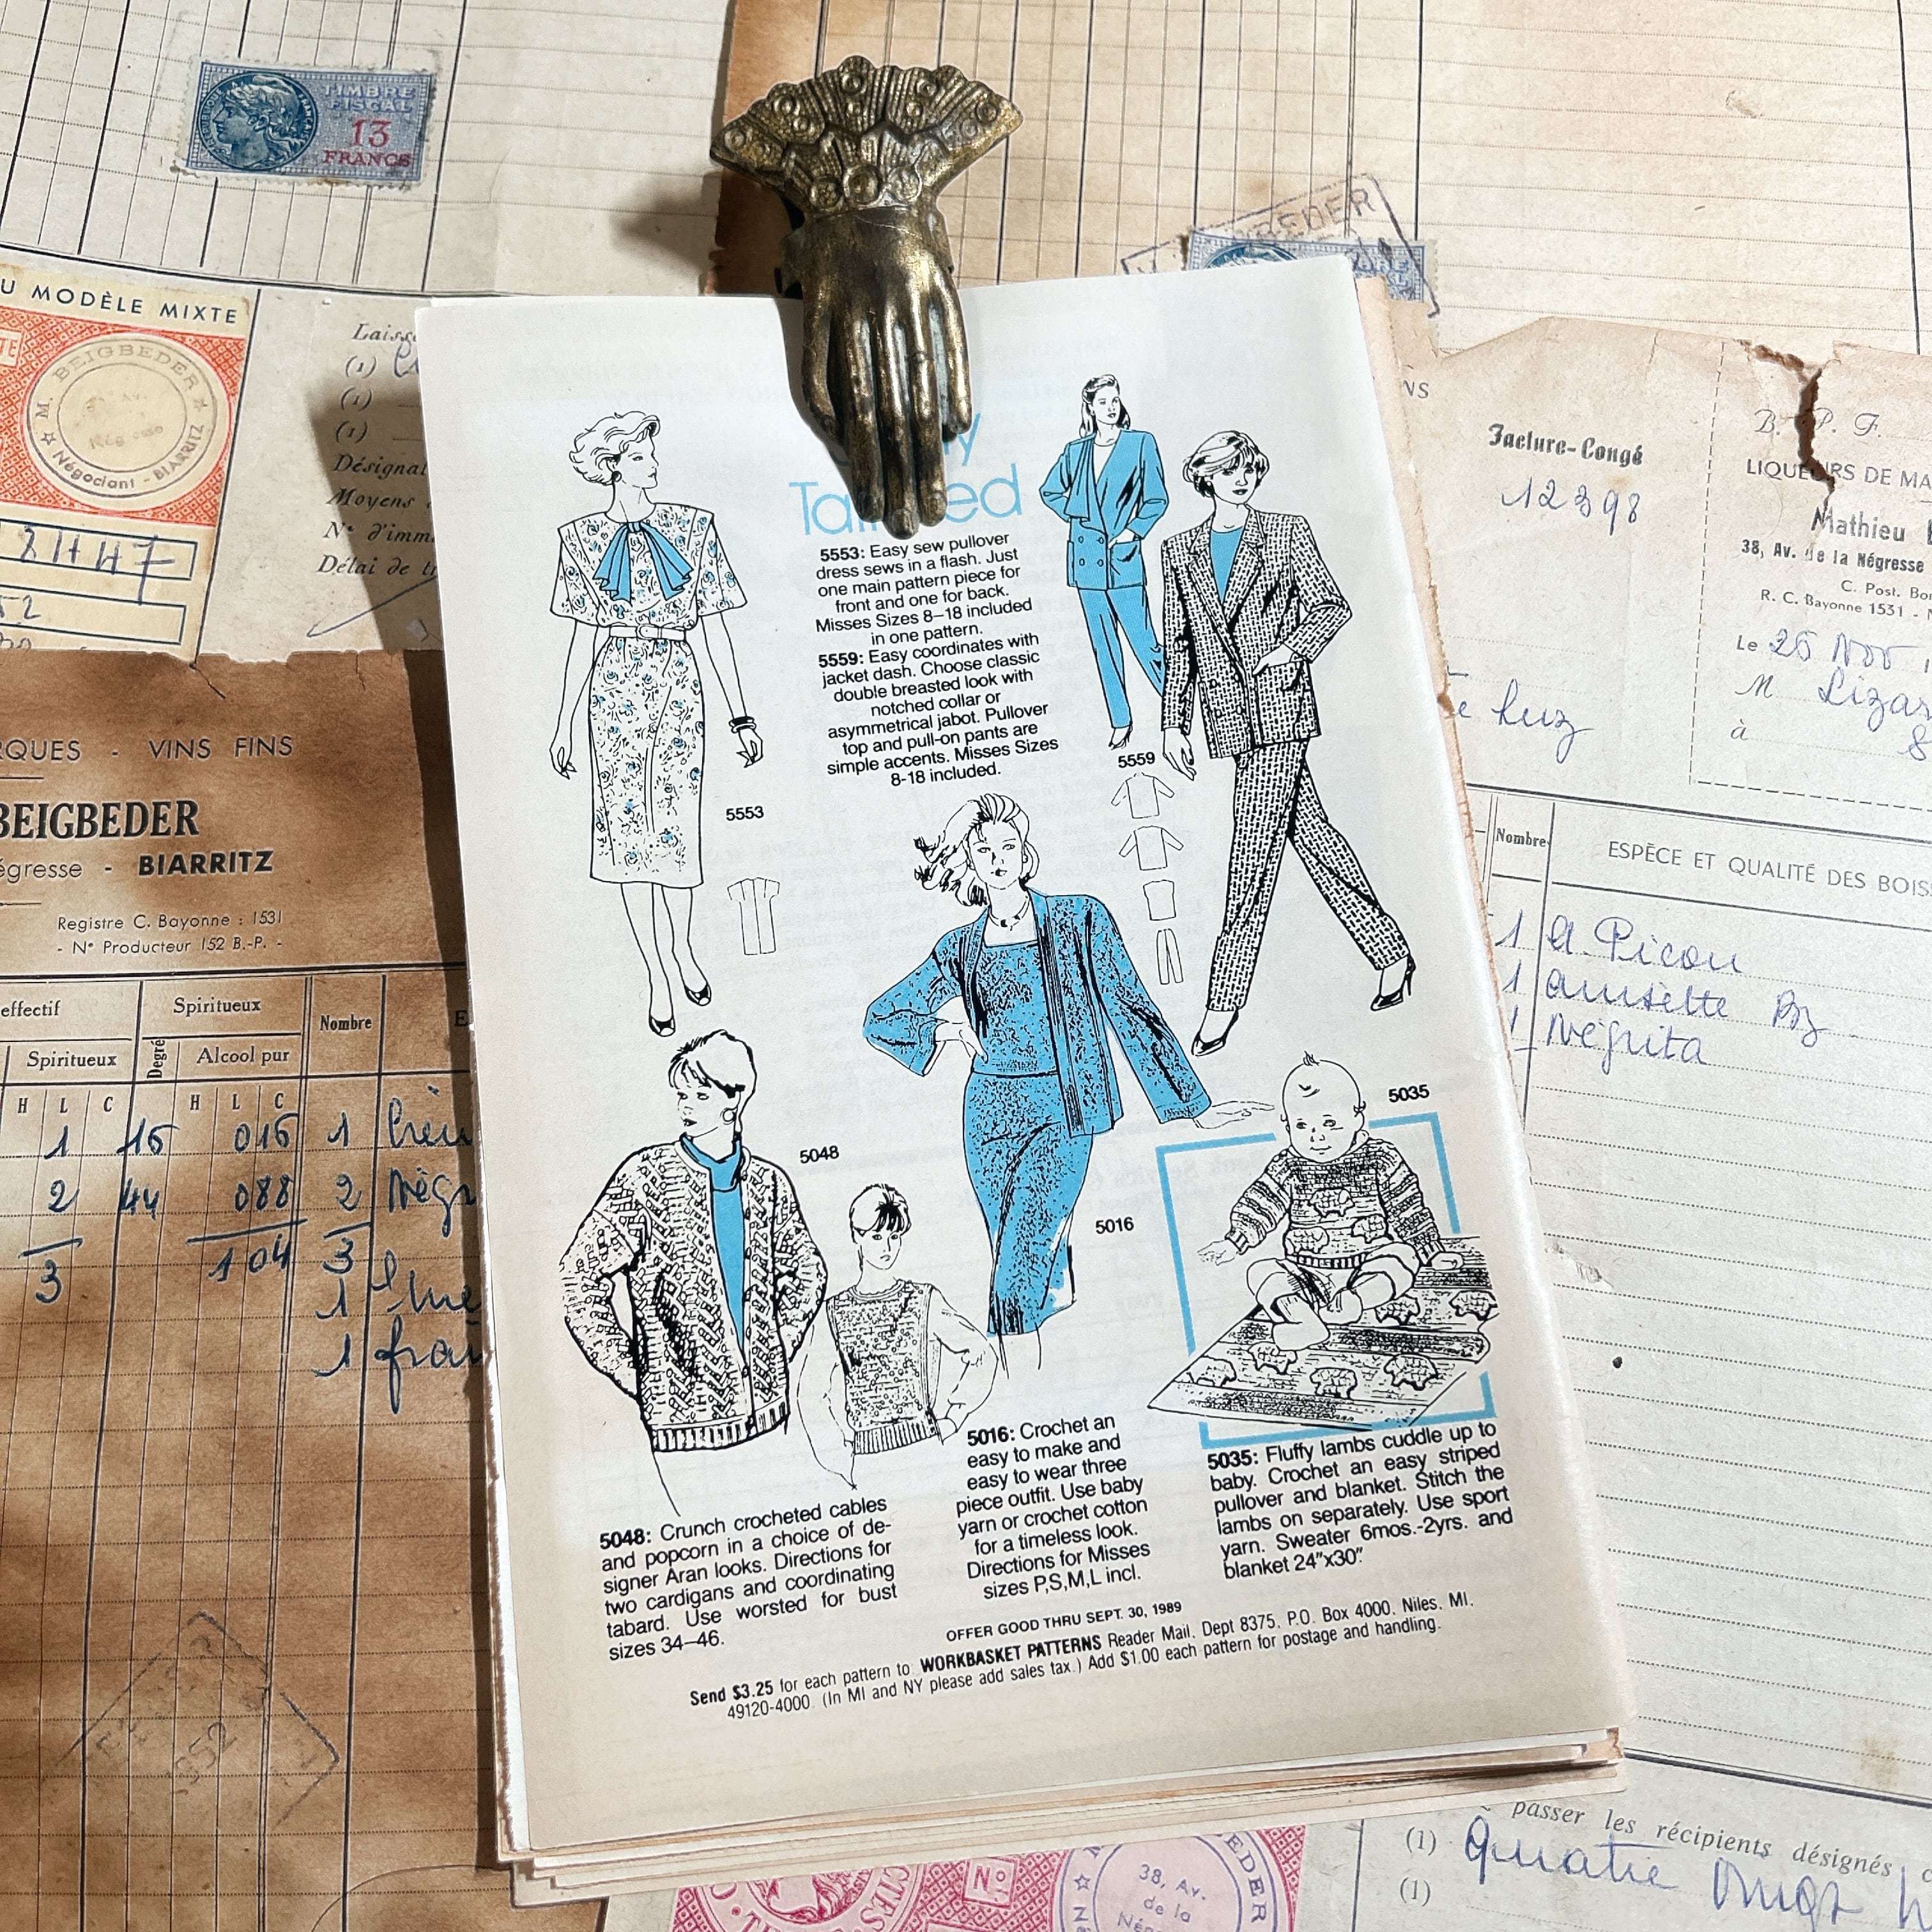 TIMBRE
FISCAL
13
FRANCS
U MODÈLE MIXTE
M. BEIGBEDER
Négociant - BIARRITZ
(1)
(1)
(1)
Moyens
RQUES - VINS FINS
BEIGBEDER
égresse - BIARRITZ
Registre C. Bayonne : 1531
- N° Producteur 152 B.-P. -
effectif
Spiritueux
Nombre
Spiritueux
Degré
Alcool pur
H L C
H L C
1 45 015 1
2 44 088 2
3 104 3
1
1
1952
5553: Easy sew pullover
dress sews in a flash. Just
one main pattern piece for
front and one for back.
Misses Sizes 8–18 included
in one pattern.
5559: Easy coordinates with
jacket dash. Choose classic
double breasted look with
notched collar or
asymmetrical jabot. Pullover
top and pull-on pants are
simple accents. Misses Sizes
8-18 included.
5553
5559
5048
5016
5035
5048: Crunch crocheted cables
and popcorn in a choice of de-
signer Aran looks. Directions for
two cardigans and coordinating
tabard. Use worsted for bust
sizes 34–46.
5016: Crochet an
easy to make and
easy to wear three
piece outfit. Use baby
yarn or crochet cotton
for a timeless look.
Directions for Misses
sizes P,S,M,L incl.
5035: Fluffy lambs cuddle up to
baby. Crochet an easy striped
pullover and blanket. Stitch the
lambs on separately. Use sport
yarn. Sweater 6mos.-2yrs. and
blanket 24"x30".
OFFER GOOD THRU SEPT. 30, 1989
Send $3.25 for each pattern to WORKBASKET PATTERNS Reader Mail, Dept 8375, P.O. Box 4000, Niles, MI.
49120-4000. (In MI and NY please add sales tax.) Add $1.00 each pattern for postage and handling.
Facture-Congé
12398
B. P. F.
LIQUEURS DE MA
Mathieu
38, Av. de la Négresse
C. Post. Bor
R. C. Bayonne 1531 -
Le 25 Nov
M Lizar
à
Luz
Nombre
ESPÈCE ET QUALITÉ DES BOIS
1 A. Picon
1 anisette
1 Négrita
passer les récipients désignés
(1) quatre
(1)
N°1
38, Av.
de la